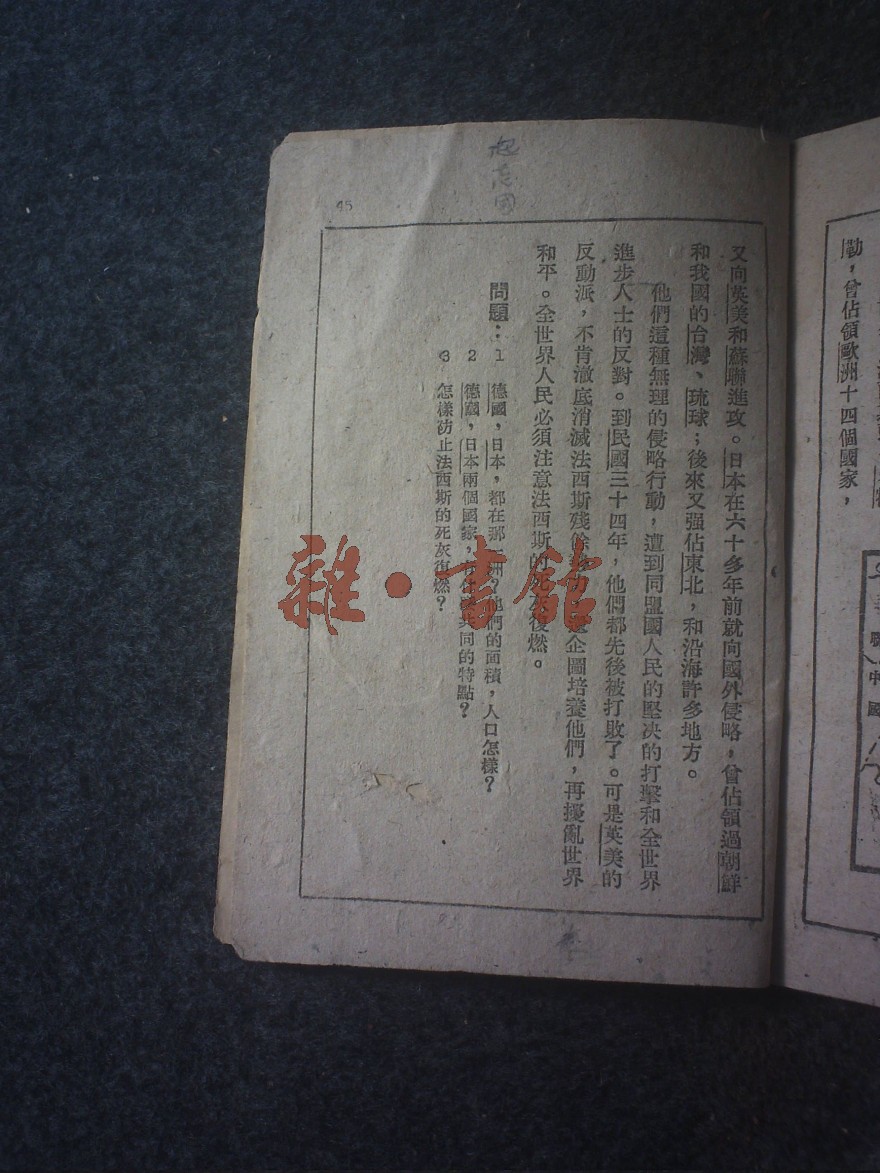 勒，曾佔領歐洲十四個國家，
中國
45
又向英美和蘇聯進攻。日本在六十多年前就向國外侵略，曾佔領過朝鮮
和我國的台灣、琉球；後來又强佔東北，和沿海許多地方。
他們這種無理的侵略行動，遭到同盟國人民的堅决的打擊和全世界
進步人士的反對。到民國三十四年，他們都先後被打敗了。可是英美的
反動派，不肯澈底消滅法西斯殘餘企圖培養他們，再擾亂世界
和平。全世界人民必須注意法西斯的死灰復燃。
問題：1 德國，日本，都在那洲？他們的面積，人口怎樣？
2 德國，日本兩個國家，共同的特點？
3 怎樣防止法西斯的死灰復燃？
雜·書館